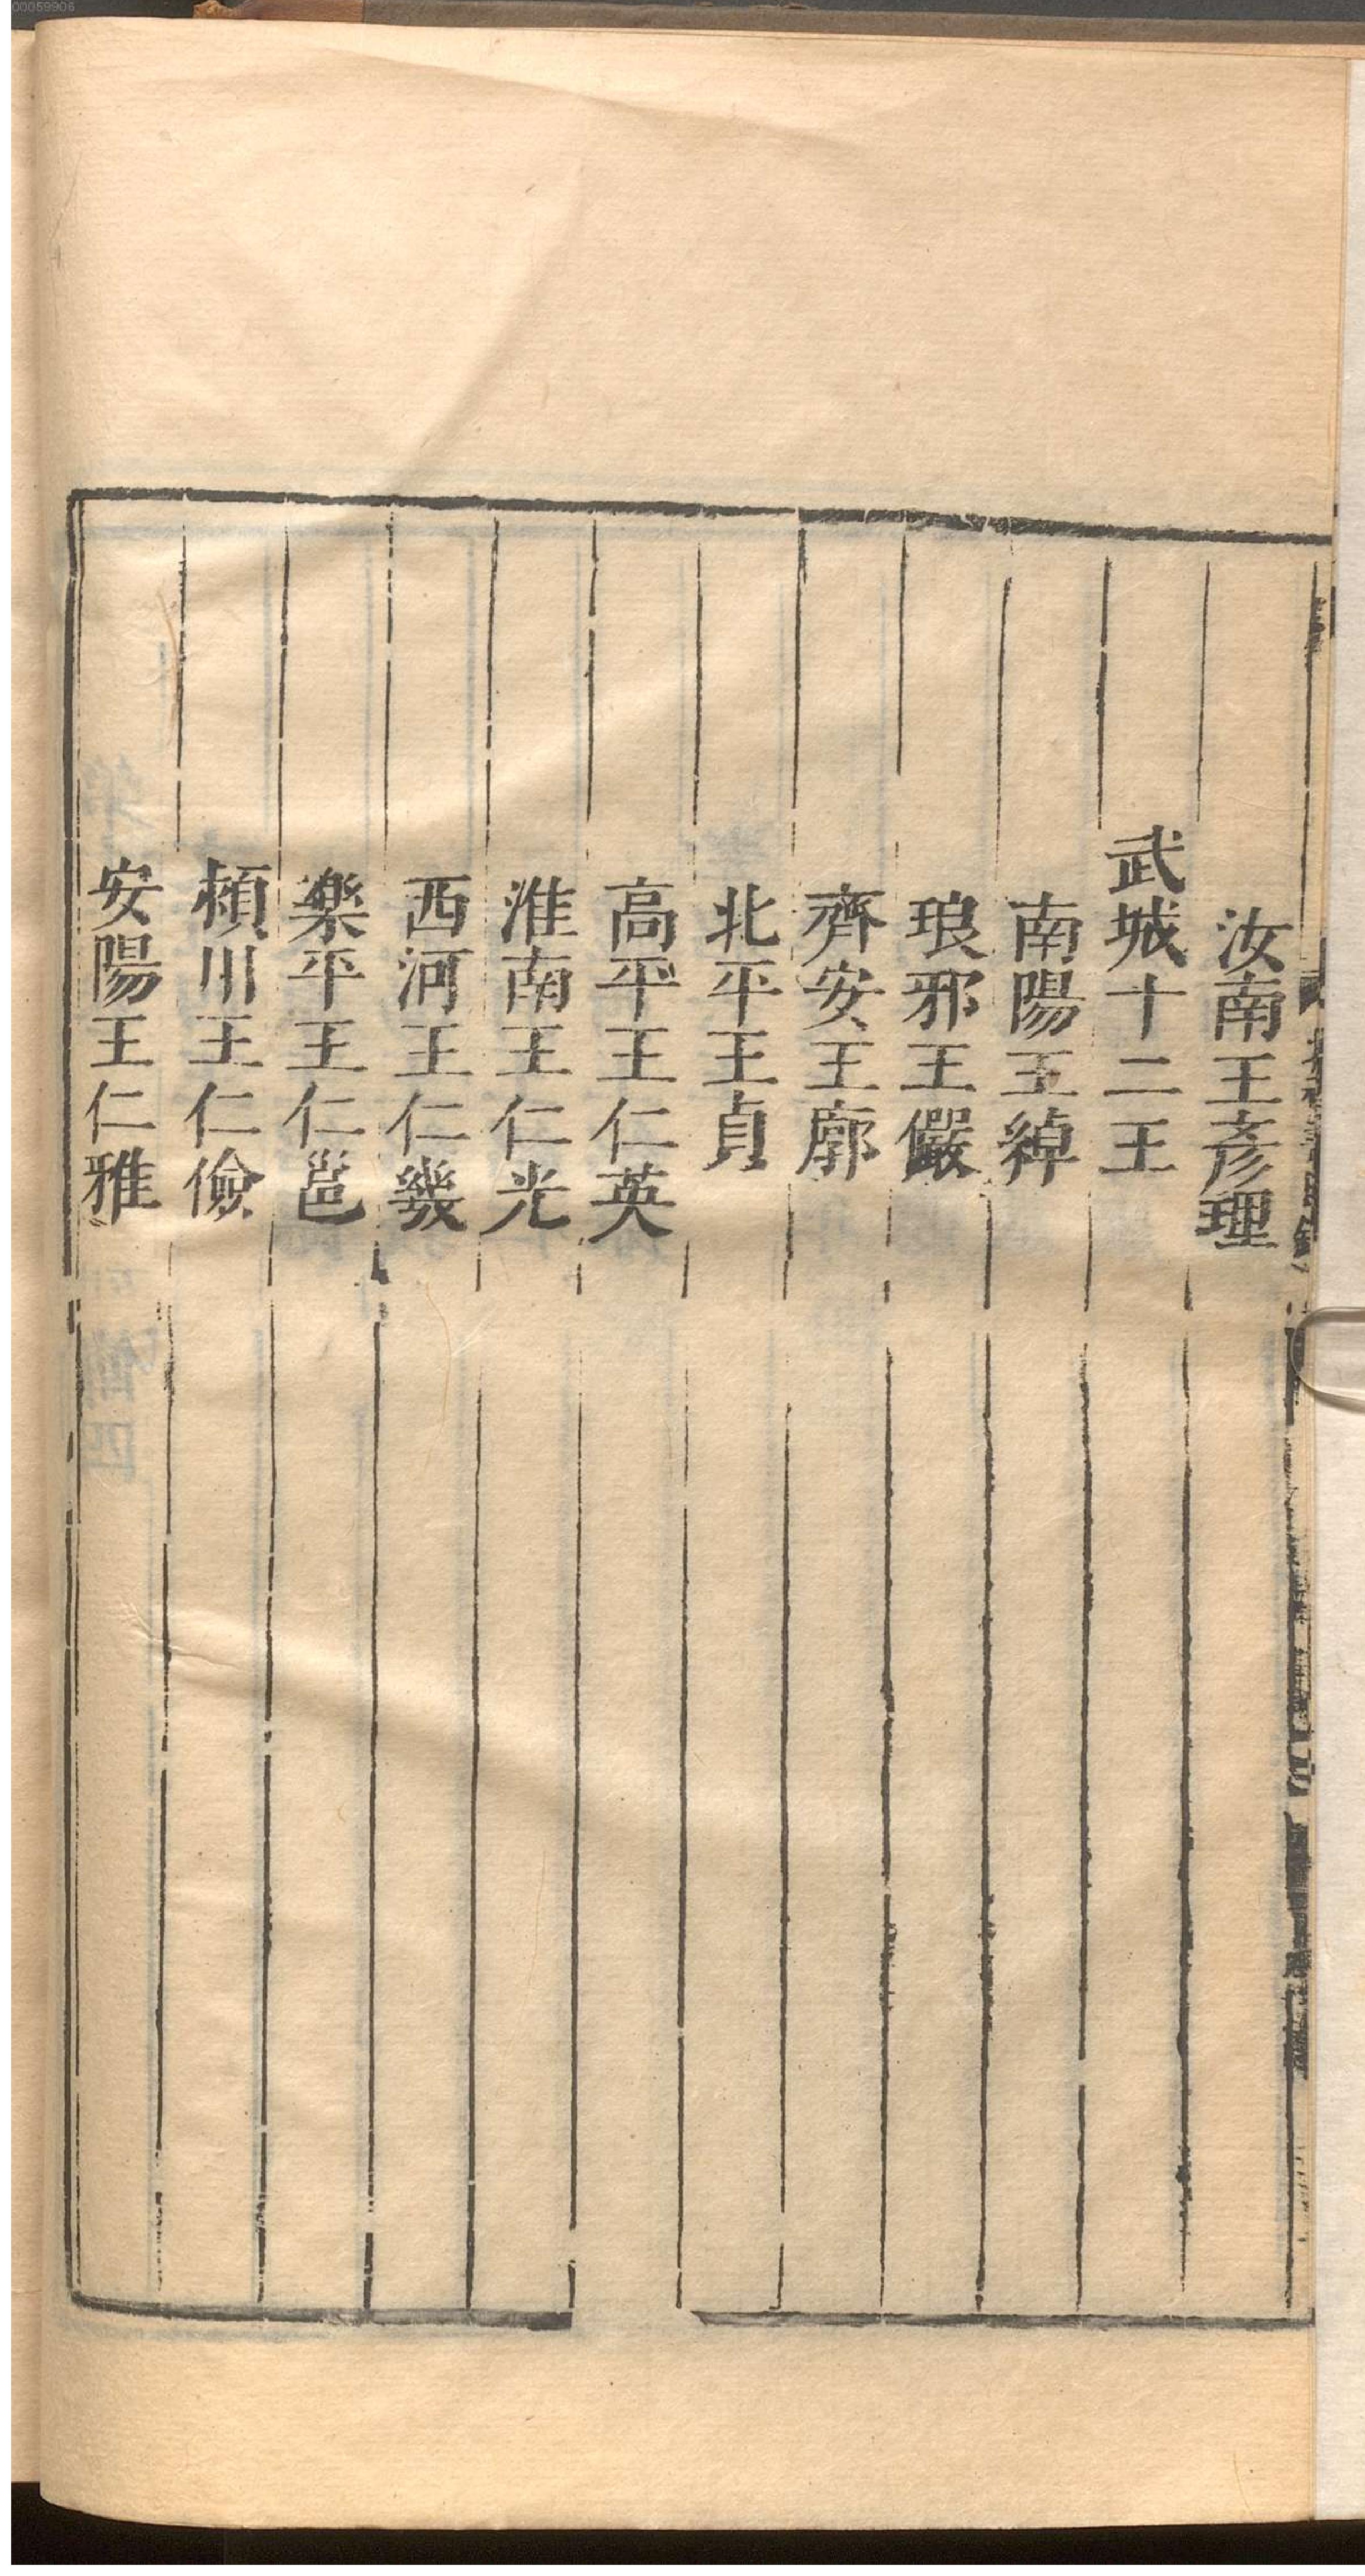 汝南王彥理
武城十二王
南陽王綽
琅邪王儼
齊安王廓
北平王貞
高平王仁英
淮南王仁光
西河王仁幾
樂平王仁邕
頴川王仁儉
安陽王仁雅
00059906